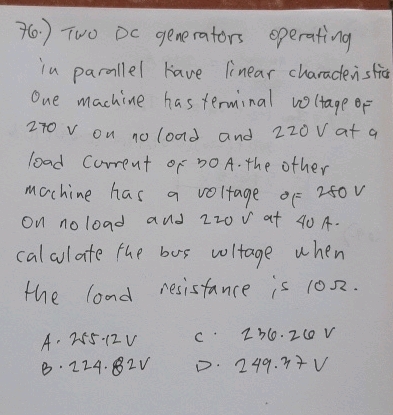 76.) Two DC generators operating
in parallel have linear characteristics
One machine has terminal voltage of
270 V on no load and 220 V at a
load current of 30 A. the other
machine has a voltage of 280 V
on no load and 220 V at 40 A.
calculate the bus voltage when
the load resistance is 10Ω.
A. 255.12 V C. 236.26 V
B. 224.82V D. 249.37 V